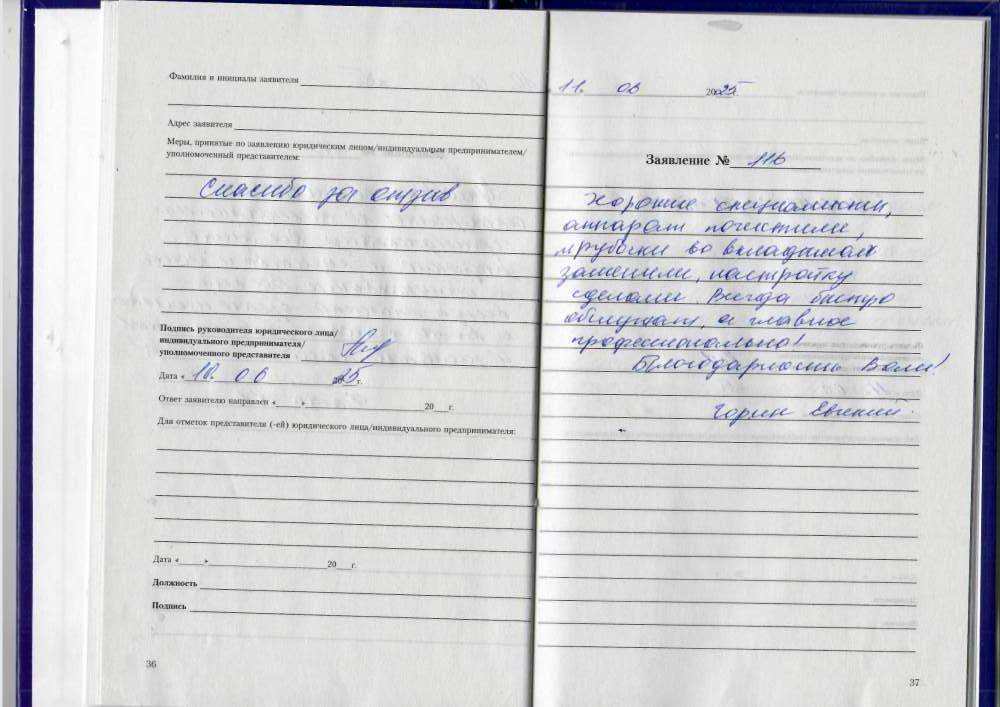 Фамилия и инициалы заявителя
Адрес заявителя
Меры, принятые по заявлению юридическим лицом/индивидуальным предпринимателем/
уполномоченный представителем:
Спасибо за отзыв
Подпись руководителя юридического лица/
индивидуального предпринимателя/
уполномоченного представителя
Дата « 10. 06 2025 г.
Ответ заявителю направлен « » 20 г.
Для отметок представителя (-ей) юридического лица/индивидуального предпринимателя:
Дата « » 20 г.
Должность
Подпись
36
11. 06 2025
Заявление № 116
Хорошие специалисты,
аппарат почистили,
трубочки во вкладышах
заменили, настройку
сделали. Всегда быстро
обслужат, а главное
профессионально!
Благодарность Вам!
Горин Евгений.
37